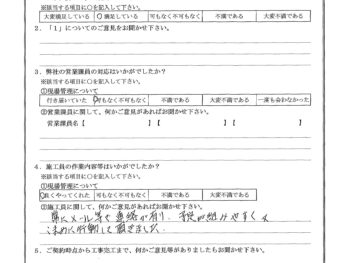 ※該当する項目に○を記入して下さい。
大変満足している 満足している 可もなく不可もなく 不満である 大変不満である
2．「1」についてのご意見をお聞かせ下さい。
3．弊社の営業課員の対応はいかがでしたか？
※該当する項目に○を記入して下さい。
①現場管理について
行き届いていた 可もなく不可もなく 不満である 大変不満である 一度も会わなかった
②営業課員に関して、何かご意見があればお聞かせ下さい。
営業課員名【 】【 】【 】
4．施工員の作業内容等はいかがでしたか？
※該当する項目に○を記入して下さい。
①現場管理について
良くやってくれた 可もなく不可もなく 不満である 大変不満である
②施工員に関して、何かご意見があればお聞かせ下さい。
常にメール等で連絡が有り、予定が組みやすく
決めに行動して頂きました
5．ご契約時点から工事完工まで、何かご意見等がありましたらお聞かせ下さい。